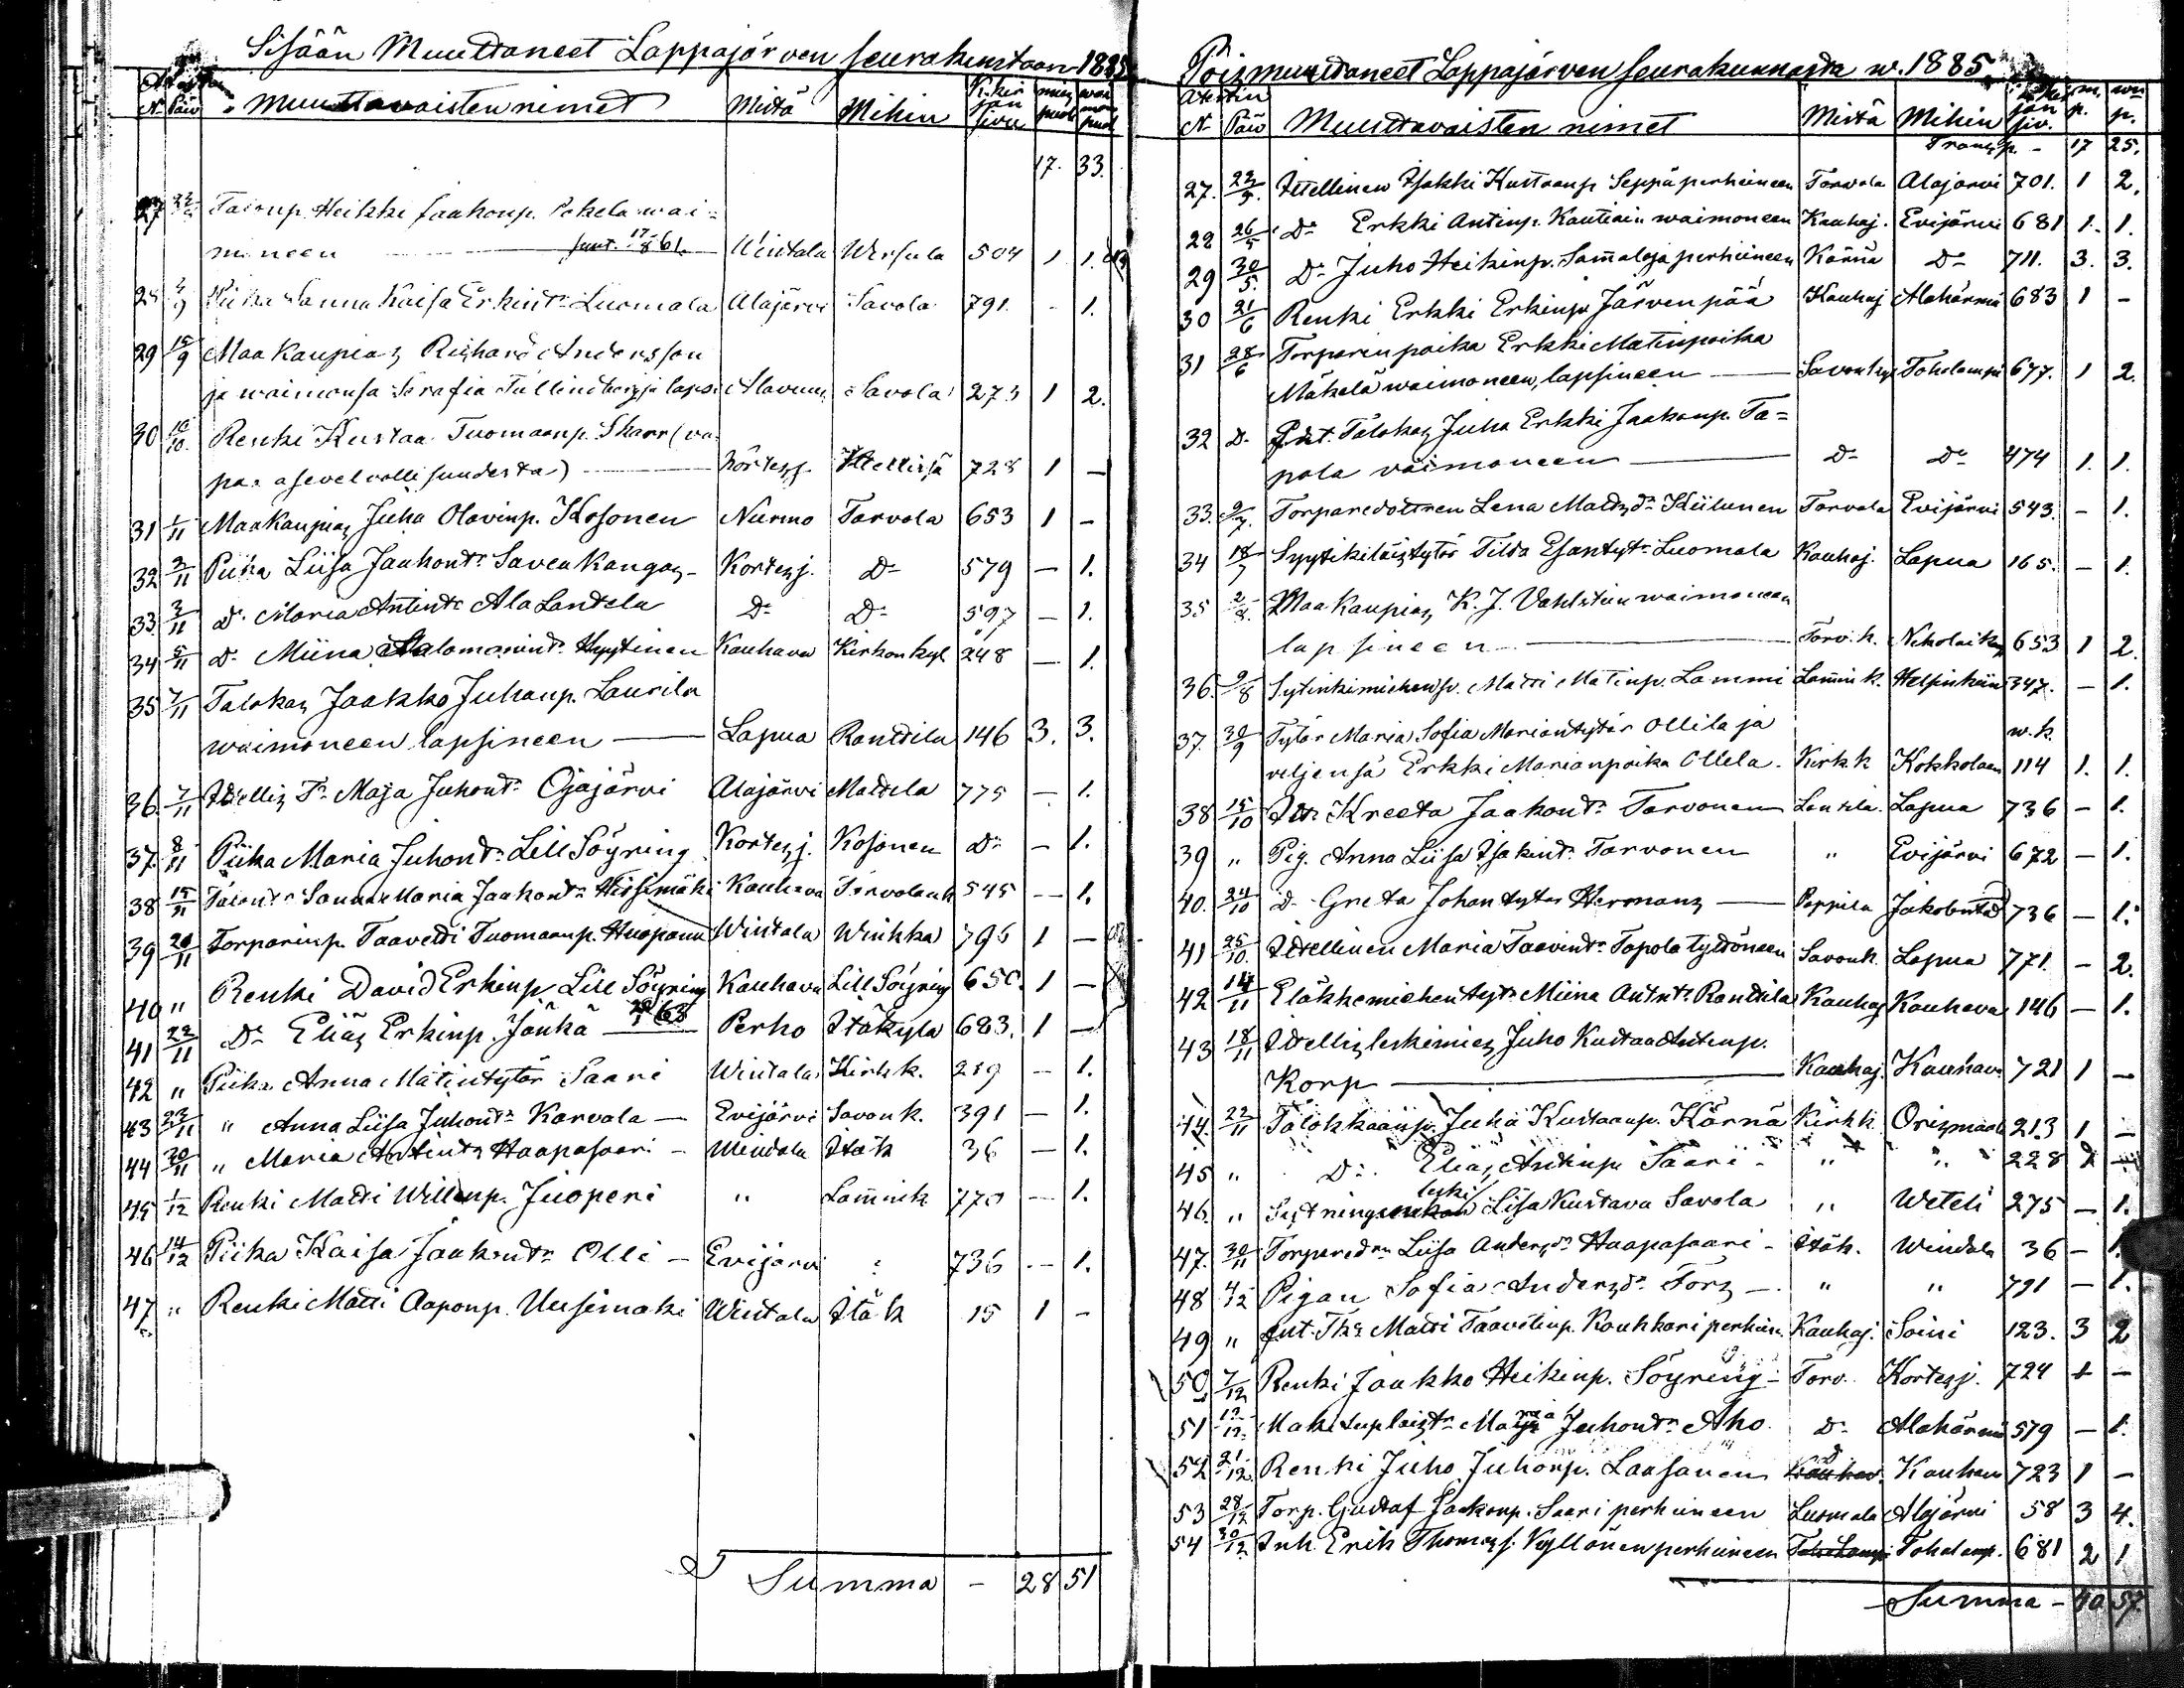 Sisään Muuttaneet Lappajärven seurakuntaan 1885
N Päiv Muuttavaisten nimet Mistä Mihin K. kirjan sivu miesp. waimop.
17. 33.
27 Talonp. Heikki Jaakonp. Pokela wai-
moneen synt. 17/8 61. Wintala Wersula 504 1 1.
28 Piika Sanna Kaisa Erkint. Luomala Alajärvi Savola 791. - 1.
29 15/9 Maakaupias Richard Andersson
ja waimonsa Serafia Tullindberg ja lapsi Alavuus Savola 273 1 2.
30 10/10 Renki Kustaa Tuomaanp. Skarr (va-
paa asevelvollisuudesta) Kortesj. Itellisiä 728 1 -
31 1/11 Maakaupias Juha Olavinp. Kosonen Nurmo Tarvola 653 1 -
32 2/11 Piika Liisa Jaakont. Savenkangas Kortesj. D:o 579 - 1.
33 3/11 D:o Maria Antint. Ala Lantela D:o D:o 597 - 1.
34 5/11 D:o Miina Salomonint. Hyytinen Kauhava Kirkonkyl 248 - 1.
35 7/11 Talokas Jaakko Juhanp. Laurila
waimoneen lapsineen Lapua Rantsila 146 3. 3.
36. 7/11 Itellis T:r Maja Juhont. Ojajärvi Alajärvi Mattila 775 - 1.
37. 8/11 Piika Maria Juhont. Lill Söyring Kortesj. Kosonen D:o - 1.
38 15/11 Talont. Sanna Maria Jaakont. Hissimäki Kauhava Tarvolank 545 - 1.
39 20/11 Torparinp. Taavetti Tuomaanp. Huopana Wintala Winkka 795 1 -
40 " Renki David Erkinp. Lill Söyring Kauhava Lill Söyring 650 1 -
41 22/11 D:o Elias Erkinp. Jänkä Perho Itäkyla 683. 1 -
42 " Piika Anna Matintytär Saari Wintala Kirkk. 289 - 1.
43 23/11 " Anna Liisa Juhont. Karvala Evijärvi Savonk. 391 - 1.
44 30/11 " Maria Antint. Haapasaari Windala Itäk 36 - 1.
45 1/12 Renki Matti Willenp. Juoperi " Lamink 770 - 1.
46 14/12 Piika Kaisa Jaakont. Olli Evijärvi 736 - 1.
47 " Renki Matti Aaponp. Uusimäki Wintala Itäk 15 1 -
Summa - 28 51
Poismuuttaneet Lappajärven seurakunnasta w. 1885
Atestin
N Päiv Muuttavaisten nimet Mistä Mihin jan siv. m. p. w. p.
Transp. - 17 25.
27. 22/5. Itellinen Isakki Kustaanp. Seppä perheineen Tarvola Alajärvi 701. 1 2.
28 26/5 D:o Erkki Antinp. Kautiain waimoneen Kauhaj. Evijärvi 681 1. 1.
29 30/5. D:o Juho Heikinp. Sammaloja perheineen Kärnä D:o 711. 3. 3.
30 21/6 Renki Erkki Erkinp. Järvenpää Kauhaj Alahärmä 683 1 -
31 28/6 Torparinpoika Erkki Matinpoika
Mäkelä waimoneen, lapsineen Savonkyl Toholampi 677. 1 2.
32 D:o Ent. Talokas Juha Erkki Jaakonp. Ta-
pola vaimoneen D:o D:o 474 1. 1.
33. 9/7. Torparedottren Lena Matsd:r Kiilunen Tarvola Evijärvi 543. - 1.
34 18/7 Syytikiläistytär Tilda Esantyt. Luomala Kauhaj. Lapua 165. - 1.
35 2/8. Maakaupias K. J. Vahlstin waimoneen
lapsineen Tarv. k. Nikolaik 653 1 2.
36. 9/8 Sytinkimiehen p. Matti Matinp. Lammi Lamink. Helsinkiin 347. - 1.
37. 30/9 Tytär Maria Sofia Mariantytär Ollila ja w. k.
veljensä Erkki Marianpoika Ollila. Kirk. k Kokkolaan 114 1. 1.
38 15/10 Itt. Kreeta Jaakont. Tarvonen Lapua 736 - 1.
39 " Pig. Anna Liisa Isakint. Tarvonen " Evijärvi 672 - 1.
40. 24/10 D:o Greta Johantytar Hermans Pappila Jakobstad 736 - 1.
41 25/10. Itellinen Maria Taavint. Tapola tyttöneen Savonk. Lapua 771. - 2.
42 14/11 Eläkkemiehen tyt. Miina Antnt. Rantsila Kauhaj Kauhava 146 - 1.
43 18/11 Itellis leskimies Juho Kustaa Antinp.
Korp Kauhaj. Kauhava 721 1 -
44. 22/11 Talokkaanp. Juha Kustaanp. Kärnä Kirkk. Orismaala 213 1 -
45 " D:o Elias Antinp. Saari " " 228 1 -
46. " leski Liisa Kustava Savola " Weteli 275 - 1.
47. 30/11 Torpared:rn Liisa Andersd:r Haapasaari Itäk. Windala 36 - 1.
48 4/12 Pigan Sofia Andersd:r Fors " " 791 - 1.
49 " Ent. Matti Taavetinp. Koukkari perhein. Kauhaj. Soini 123. 3 2
50 7/12 Renki Jaakko Heikinp. Söyring Tarv. Kortesj. 724 1 -
51 Maria Juhont. Aho D:o Alahärmä 579 - 1.
52 21/12 Renki Juho Juhonp. Laasanen Kauhava 723 1 -
53 28/12 Torp. Gustaf Jaakonp. Saari perheineen Luomala Alajärvi 58 3 4.
54 30/12. Inh. Erik Thomass. Kyllönen perheineen Toholampi Toholamp. 681 2 1
Summa - 40 57.